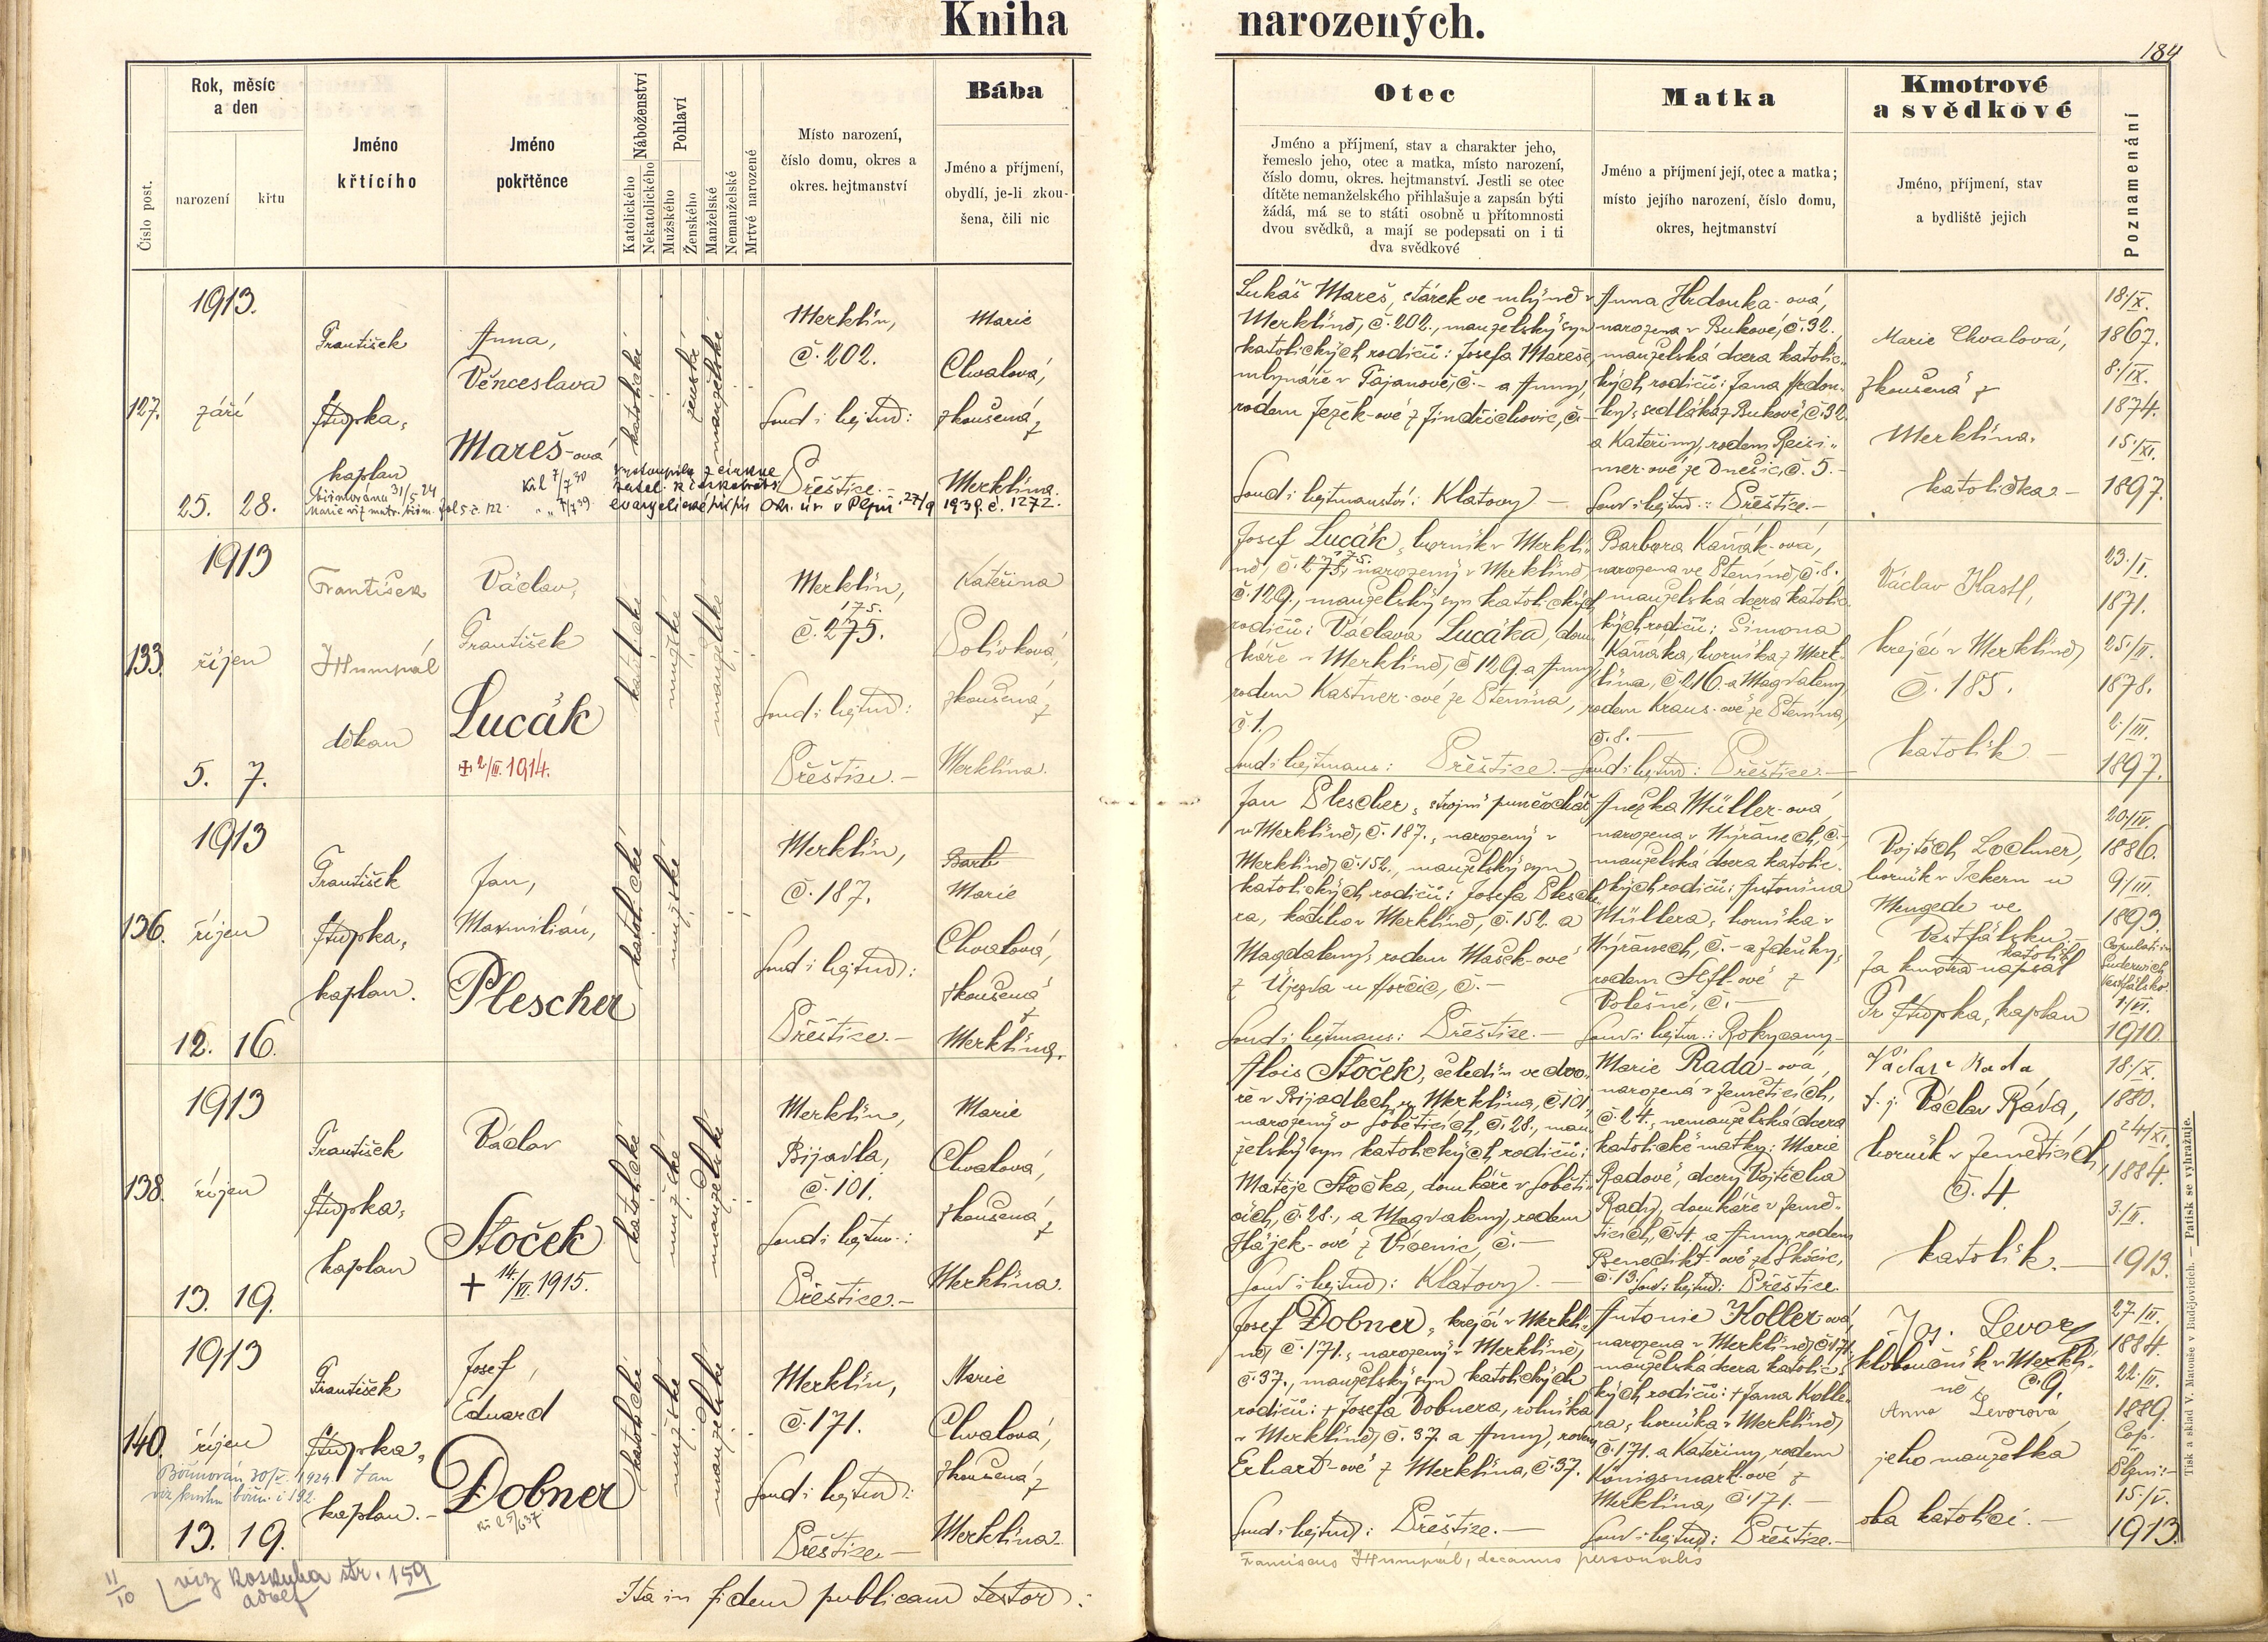 Kniha narozených.
184
Rok, měsíc
a den
narození
křtu
Číslo post.
Jméno
křtícího
Jméno
pokřtěnce
Náboženství
Katolického
Nekatolického
Pohlaví
Mužského
Ženského
Manželské
Nemanželské
Mrtvé narozené
Místo narození,
číslo domu, okres a
okres. hejtmanství
Bába
Jméno a příjmení,
obydlí, je-li zkou-
šena, čili nic
Otec
Jméno a příjmení, stav a charakter jeho,
řemeslo jeho, otec a matka, místo narození,
číslo domu, okres. hejtmanství. Jestli se otec
dítěte nemanželského přihlašuje a zapsán býti
žádá, má se to státi osobně u přítomnosti
dvou svědků, a mají se podepsati on i ti
dva svědkové
Matka
Jméno a příjmení její, otec a matka;
místo jejího narození, číslo domu,
okres, hejtmanství
Kmotrové
a svědkové
Jméno, příjmení, stav
a bydliště jejich
Poznamenání
127.
1913.
září
25. 28.
František
Stupka,
kaplan
Anna,
Věnceslava
Mareš-ová
katolické
ženské
manželské
Merklín,
č. 202.
Soud i hejtm:
Přeštice.-
Marie
Chvalová,
zkoušená z
Merklína.
Lukáš Mareš, stárek ve mlýně v
Merklíně, č. 202., manželský syn
katolických rodičů: Josefa Mareše,
mlynáře v Tajanově, č.- a Anny,
rodem Ježek-ové z Jindřichovic, č.-
Soud i hejtmanství: Klatovy -
Anna Hrdonka-ová,
narozena v Bukové, č. 32.,
manželská dcera katolic-
kých rodičů: Jana Hrdon-
ky, sedláka z Bukové, č. 32
a Kateřiny, rodem Reisi-
mer-ové ze Dnešic, č. 5.-
Soud i hejtm.: Přeštice.-
Marie Chvalová,
zkoušená z
Merklína.
katolička -
18./X.
1867.
8./IX.
1874.
15./XI.
1897.
133.
1913
říjen
5. 7.
František
Humpál
děkan
Václav,
František
Lucák
2/III. 1914.
katolické
mužské
manželské
Merklín,
175.
č. 275.
Soud i hejtm:
Přeštice.-
Kateřina
Polívková,
zkoušená z
Merklína.
Josef Lucák, horník v Merklí-
ně, č. 275, narozený v Merklíně,
č. 129., manželský syn katolických
rodičů: Václava Lucáka, dom-
káře v Merklíně, č. 129 a Anny,
rodem Kastner-ové ze Stenína,
č. 1.
Soud i hejtmans: Přeštice.-
Barbora Kaňák-ová,
narozena ve Steníně, č. 8.,
manželská dcera katolic-
kých rodičů: Šimona
Kaňáka, horníka z Merk-
lína, č. 216. a Magdaleny
rodem Kraus-ové ze Stenína,
č. 8.-
Soud i hejtm: Přeštice.-
Václav Hastl,
krejčí v Merklíně,
č. 185.
katolík -
23./I.
1871.
25./II.
1878.
2./III.
1897.
136.
1913
říjen
12. 16.
František
Stupka,
kaplan.
Jan,
Maxmilián,
Plescher
katolické
mužské
Merklín,
č. 187.
Soud i hejtm:
Přeštice.-
Marie
Chvalová,
zkoušená
z
Merklína.
Jan Plescher, strojní punčochář
v Merklíně, č. 187., narozený v
Merklíně, č. 152., manželský syn
katolických rodičů: Josefa Plesche-
ra, v Merklíně, č. 152. a
Magdaleny, rodem Mašek-ové
z Újezda u Horšic, č.-
Soud i hejtmans: Přeštice.-
Anežka Müller-ová,
narozena v Nýřanech, č.-
manželská dcera katolic-
kých rodičů: Antonína
Müllera, horníka v
Nýřanech, č.- a Zdeňky,
rodem z
Volešné, č.-
Soud i hejtm: Rokycany-
Vojtěch Lochner,
horník v Ickern u
Mengede ve
Vestfálsku
katolík
Za kmotra napsal
Fr Stupka, kaplan
20/IV.
1886.
9/III.
1893.
Copulati in
Suderwich
Vestfálsko
1/VI.
1910.
138.
1913
říjen
13. 19.
František
Stupka,
kaplan
Václav
Stoček
+ 14./VI. 1915.
katolické
mužské
manželské
Merklín,
Bijadla,
č. 101.
Soud i hejtm:
Přeštice.-
Marie
Chvalová,
zkoušená z
Merklína.
Alois Stoček, čeledín ve dvo-
ře v Bijadlech u Merklína, č. 101,
narozený v Soběticích, č. 28., man-
želský syn katolických rodičů:
Matěje Stočka, domkáře v Soběti-
cích, č. 28., a Magdaleny, rodem
Hájek-ové z Vícenic, č.-
Soud i hejtm: Klatovy.-
Marie Rada-ová,
narozená v Zemětíčích,
č. 24., nemanželská dcera
katolické matky: Marie
Radové, dcery Vojtěcha
Rady, domkáře v Země-
ticích, č. 4. a Anny, rodem
Benedikt-ové ze Skočic,
č. 13. Soud i hejtm: Přeštice.
Václav Rada
t. j. Václav Ráda,
horník v Zemětíčích,
č. 4.
katolík.-
18./X.
1880.
24/XI.
1884.
3./II.
1913.
140.
1913
říjen
13. 19.
Biřmován 30/V. 1924. Jan
viz knihu biřm. i 192.
František
Stupka,
kaplan.-
Josef,
Eduard
Dobner
katolické
mužské
manželské
Merklín,
č. 171.
Soud i hejtm:
Přeštice-
Marie
Chvalová,
zkoušená z
Merklína.
Josef Dobner, krejčí v Merklí-
ně, č. 171., narozený v Merklíně,
č. 37., manželský syn katolických
rodičů: + Josefa Dobnera, rolníka
v Merklíně, č. 37. a Anny, rodem
Erhart-ové z Merklína, č. 37.
Soud i hejtm: Přeštice.-
Antonie Koller-ová,
narozena v Merklíně, č. 171.
manželská dcera katolic-
kých rodičů: + Jana Kolle-
ra, horníka v Merklíně,
č. 171. a Kateřiny, rodem
Königsmark-ové z
Merklína, č. 171.-
Soud i hejtm: Přeštice.-
Jos. Levor,
kloboučník v Merklí-
ně č. 9.
Anna Levorová
jeho manželka
oba katolíci.-
27./II.
1884.
22./II.
1889.
Cop.
Plzni-
15./V.
1913.
11/10
viz Koskuba str. 159
Adolf
Ita in fidem publicam testor:
Franciscus Humpál, decanus personalis
Tisk a sklad V. Matouše v Budějovicích. - Patisk se vyhražuje.